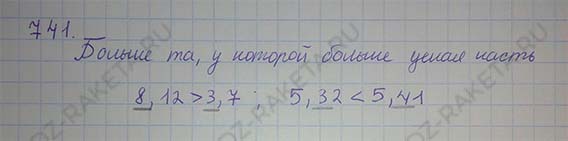 741.
Больше та, у которой больше целая часть
8,12 > 3,7 ; 5,32 < 5,41